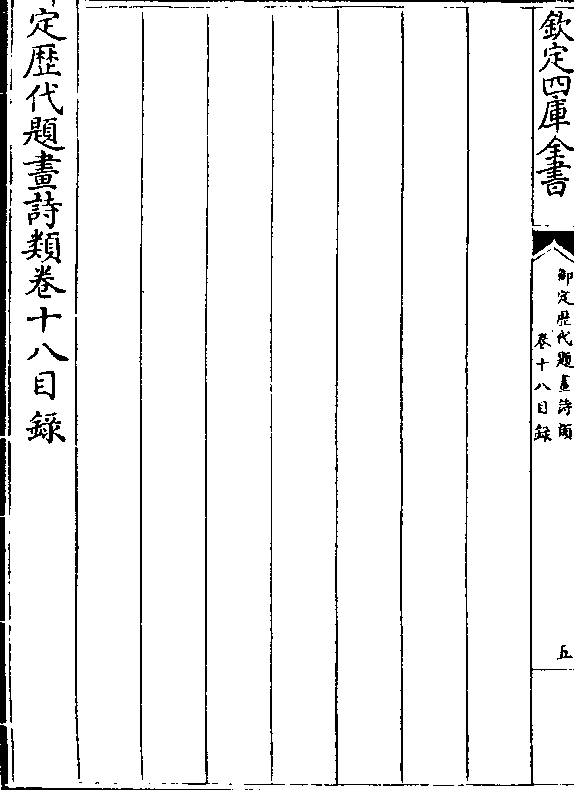 欽定四庫全書
御定歴代題畫詩類
卷十八目錄
五
定歴代題畫詩類卷十八目錄